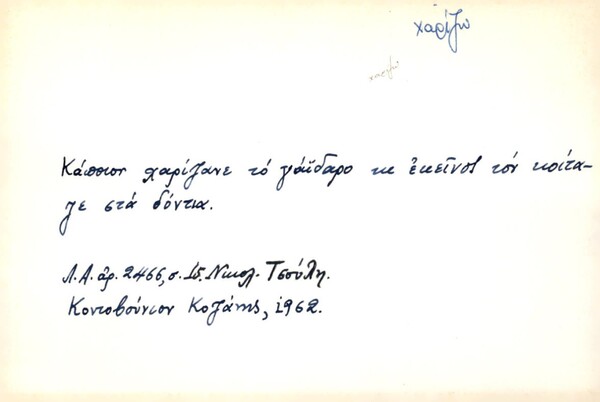 χαρίζω
χαρίζω
Κάποιον χαρίζανε τό γάϊδαρο κι ἐκεῖνος τόν κοίτα-
γε στά δόντια.
Λ.Α. ἀρ. 2466, σ. 15. Νικολ. Τσούλη.
Κοντοβούνιον Κοζάνης, 1962.